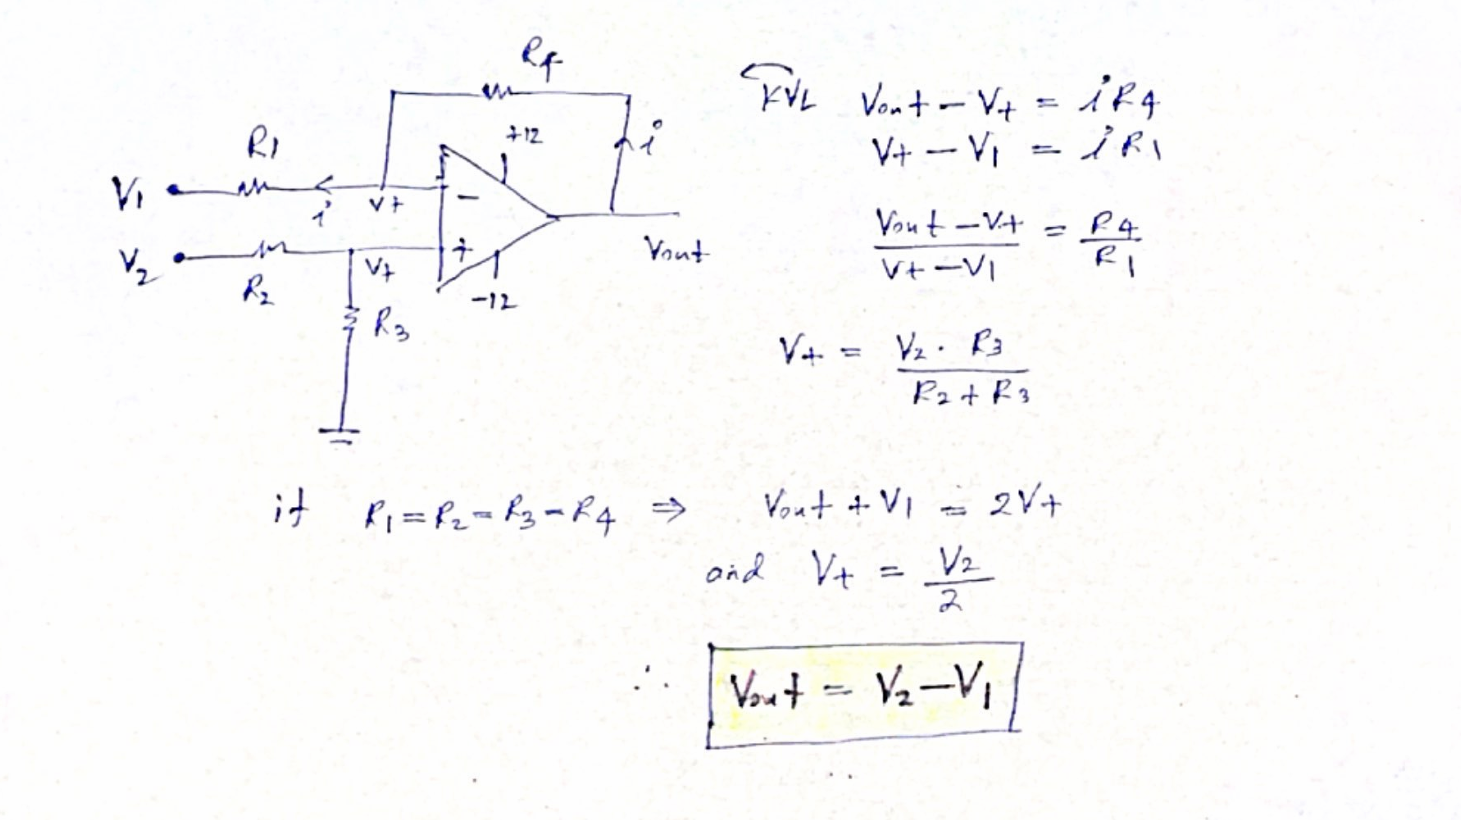 R4
+12
i
R1
V1
i
V+
-
V2
V+
+
Vout
R2
-12
R3
KVL Vout - V+ = i R4
V+ - V1 = i R1
Vout - V+ / V+ - V1 = R4 / R1
V+ = V2 . R3 / R2 + R3
if R1 = R2 = R3 = R4 ⇒ Vout + V1 = 2V+
and V+ = V2 / 2
∴ Vout = V2 - V1